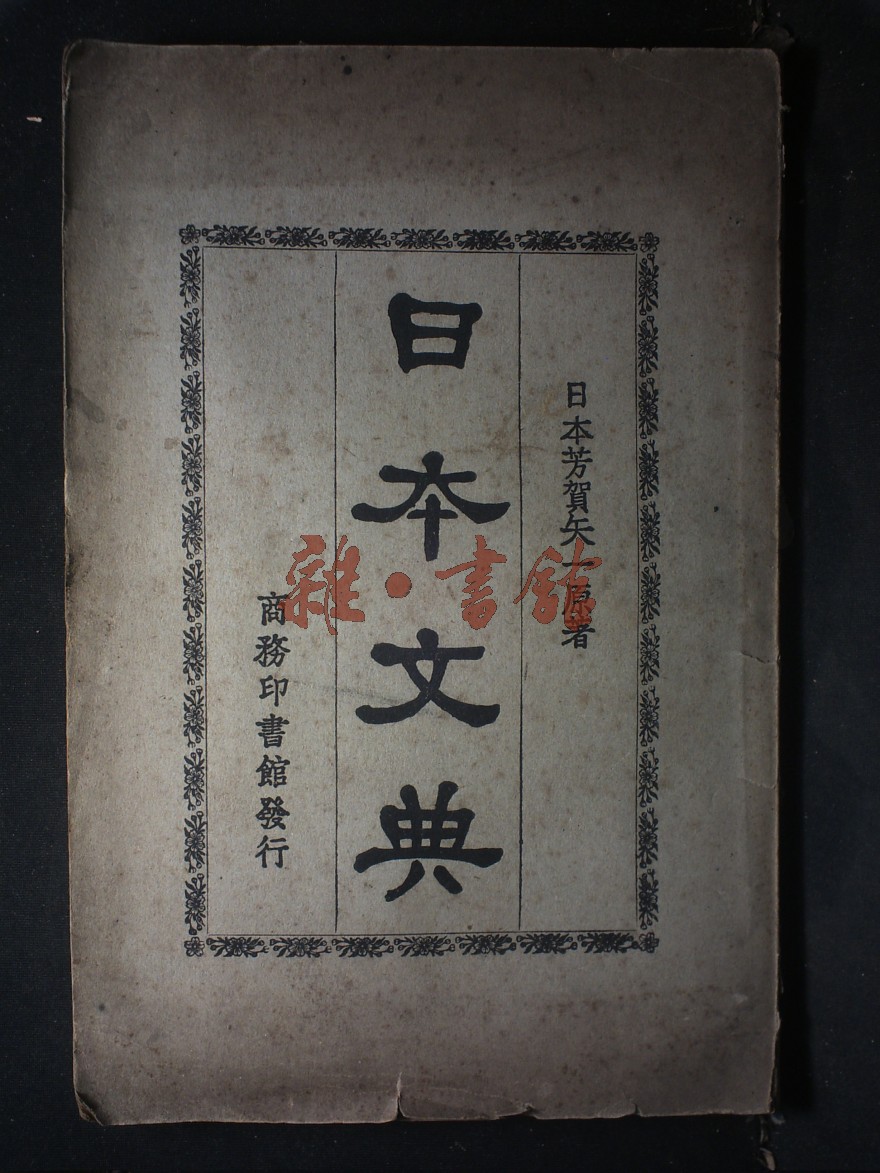 日本芳賀矢一原著
日本文典
商務印書館發行
雜·書館